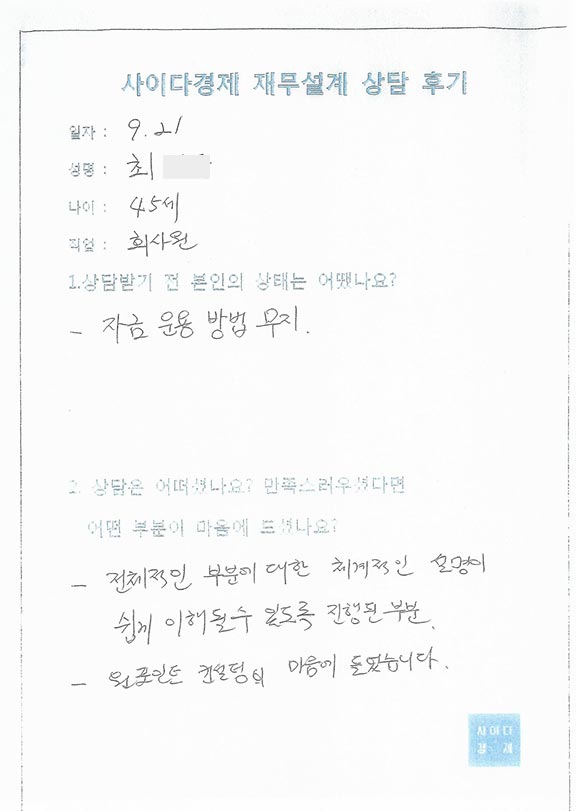 사이다경제 재무설계 상담 후기
일자 : 9. 21
성명 : 최
나이 : 45세
직업 : 회사원
1.상담받기 전 본인의 상태는 어땠나요?
- 자금 운용 방법 무지.
2. 상담은 어떠셨나요? 만족스러우셨다면
어떤 부분이 마음에 드셨나요?
- 전체적인 부분에 대한 체계적인 설명이
쉽게 이해될수 있도록 진행된 부분.
- 원포인트 컨설팅이 마음에 들었습니다.
사이다
경제